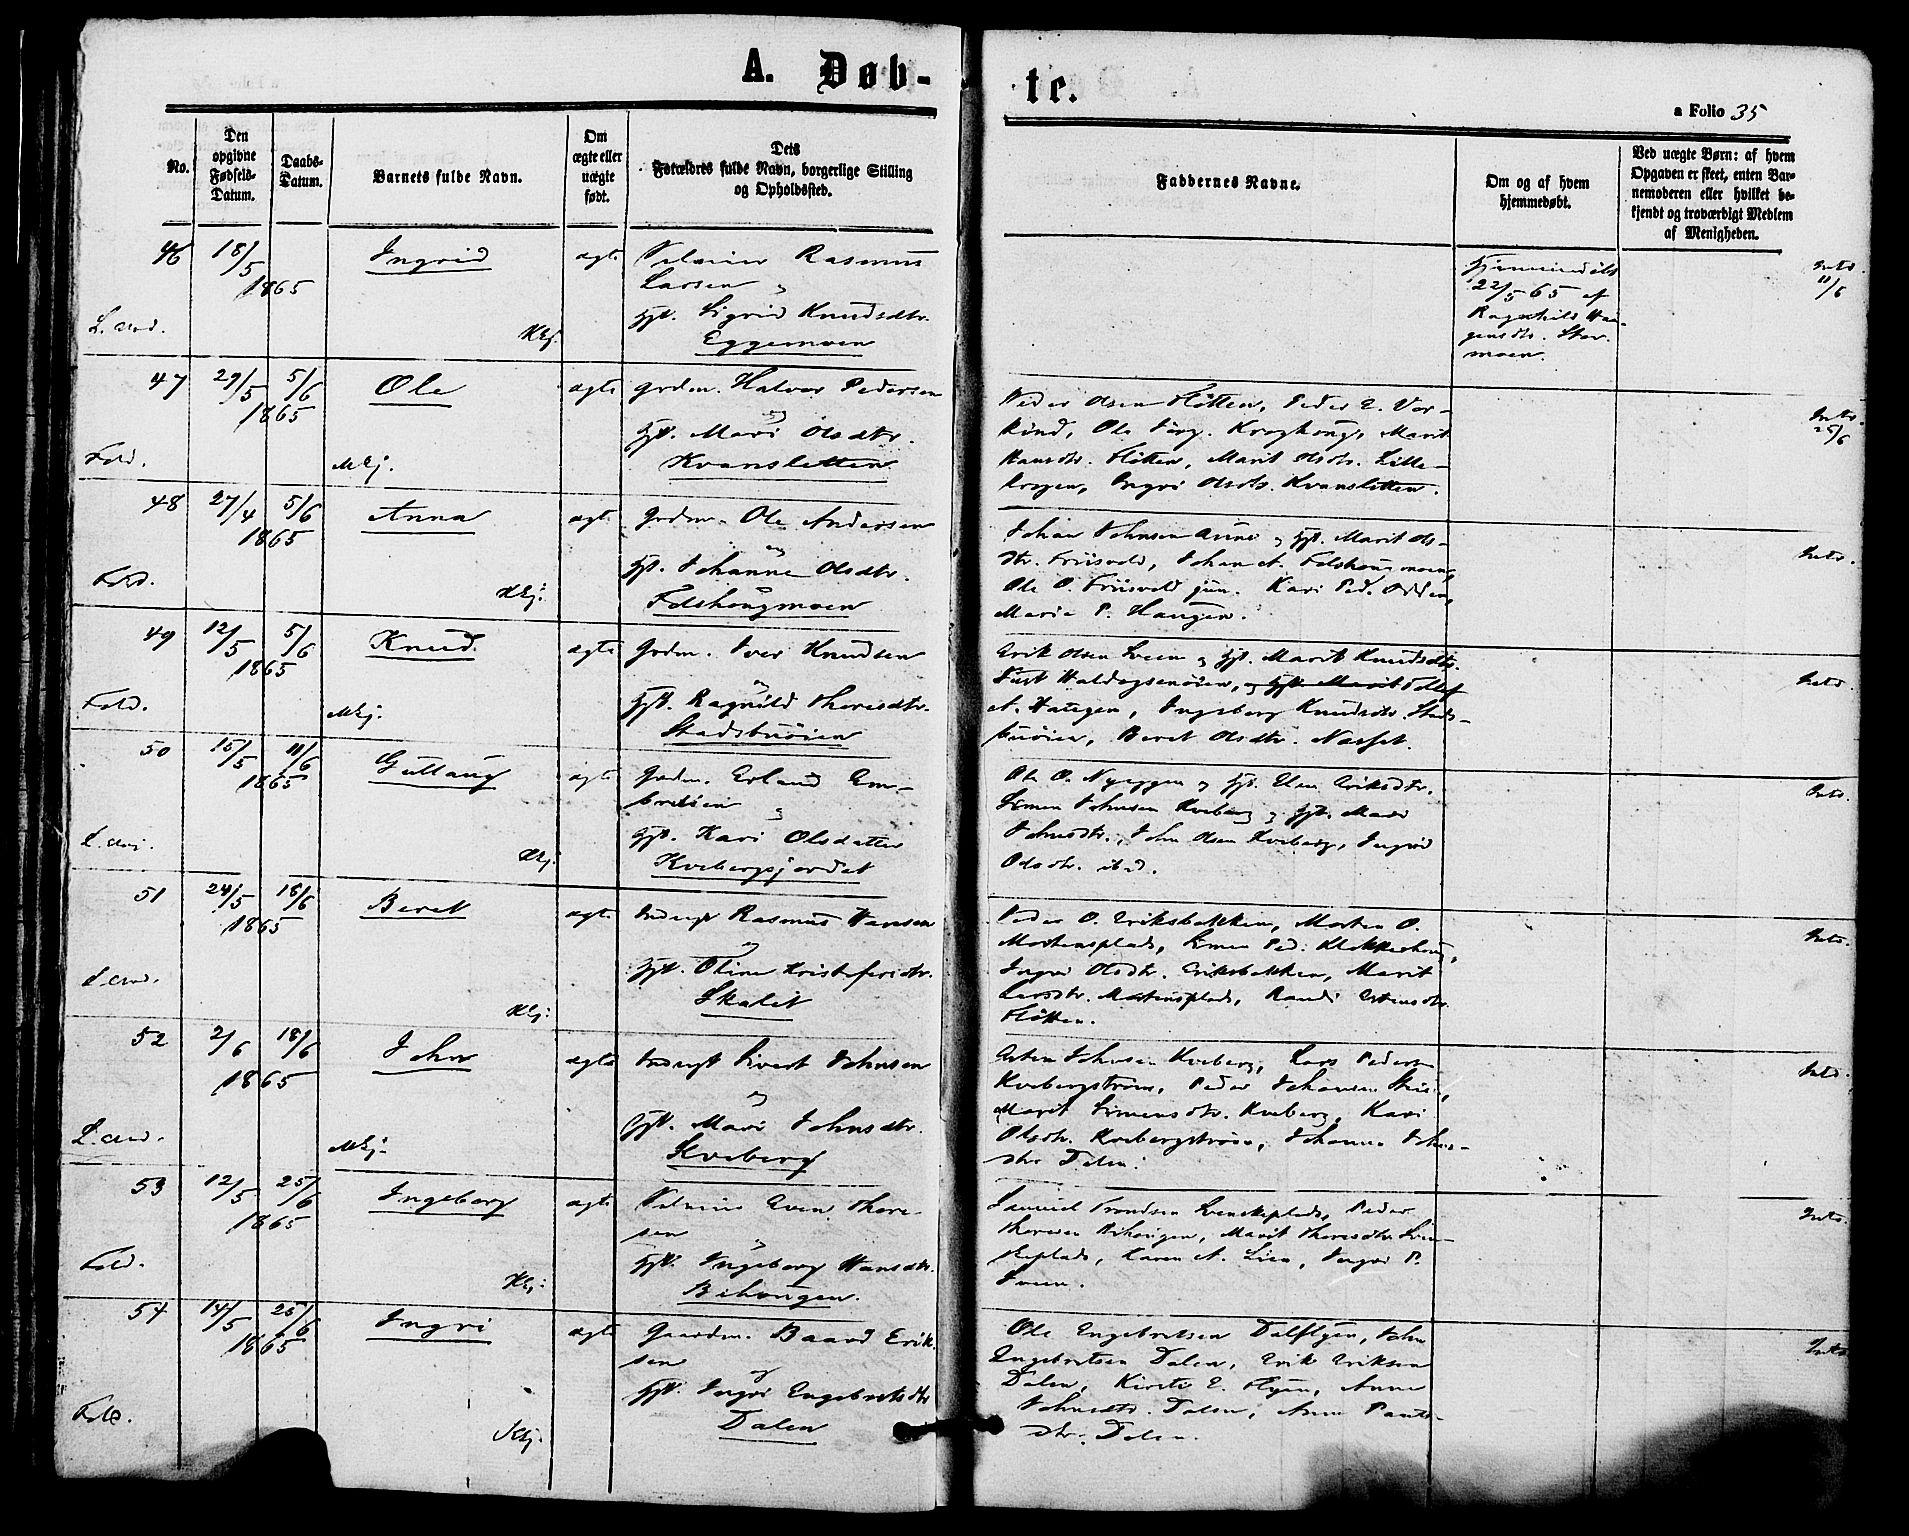 A. Døb-
te.
a Folio 35
No.
Den
opgivne
Fødsels-
Datum.
Daabs-
Datum.
Barnets fulde Navn.
Om
ægte eller
uægte
født.
Dets
Forældres fulde Navn, borgerlige Stilling
og Opholdssted.
Faddernes Navne.
Om og af hvem
hjemmedøbt.
Ved uægte Børn: af hvem
Opgaven er skeet, enten Bar-
nemoderen eller hvilket be-
kjendt og troværdigt Medlem
af Menigheden.
46 18/5 1865 Ingrid ægte
Rasmus
Larsen og
Hst. Sigrid Knudsdtr.
Eggemoen
Hjemmedøbt
22/5 65 af
Ragnhild Haa-
gensdtr. Stor-
moen.
Intr. 11/6
Kkj.
47 29/5 5/6 1865 Ole ægte
Grdm. Halvor Pedersen
og
Hst. Mari Olsdtr.
Kvansletten
Fold. Mkj.
Peder Olsen Fløtten, Peder E. Vor-
kind, Ole Kroghoug, Marit
Hansdtr. Fløtten, Marit Olsdtr. Lille-
krogen, Ingri Olsdtr. Kvansletten.
Intr. 25/6
48 27/4 5/6 1865 Anna ægte
Grdm. Ole Andersen
og
Hst. Johanne Olsdtr.
Folshougmoen
Fold. Kkj.
Johan Johnsen Aune og Hst. Marit Ols-
dtr. Friisvold, Johan A. Folshougmoen,
Ole O. Friisvold jun. Kari Ped. Odden,
Marie P. Haugen.
Intr.
49 12/5 5/6 1865 Knud ægte
Grdm. Iver Knudsen
og
Hst. Ragnild Thoresdtr.
Stadsbuøien
Fold. Mkj.
Erik Olsen Sveen og Hst. Marit Knudsdtr.
og Hst. Marit
A. Haugen, Ingeborg Knudsdtr. Stads-
buøien, Beret Olsdtr.
Intr.
50 15/5 11/6 1865 Gullaug ægte
Grdm. Erland Em-
bretsen
og
Hst. Kari Olsdatter
Kvebergsjordet
Kkj.
Ole O. Nyeggen og Hst. Elen Eriksdtr.
Simen Johnsen Kveberg og Hst. Mari
Johnsdtr., John Olsen Kveberg, Ingrid
Olsdtr. ibd.
Intr.
51 24/5 18/6 1865 Beret ægte
Inderst Rasmus Hansen
og
Hst. Oline Kristofersdtr.
Skalet
Kkj.
Peder O. Eriksbakken, Morten O.
Mortensplads, Simen Ped. Klokkerhoug,
Ingri Olsdtr. Eriksbakken, Marit
Larsdtr. Mortensplads, Randi Estensdtr.
Fløtten.
Intr.
52 2/6 18/6 1865 John ægte
Inderst Sivert Johnsen
og
Hst. Mari Johnsdtr.
Kveberg
Mkj.
Esten Johnsen Kveberg, Lars Peders.
Kvebergstrøen, Peder Johansen
Marit Simensdtr. Kveberg, Kari
Olsdtr. Kvebergstrøen, Johanne Johns-
dtr. Dalen.
Intr.
53 12/5 25/6 1865 Ingeborg ægte
Even Thore-
sen
og
Hst. Ingeborg Hansdtr.
Bihougen.
Fold. Kkj.
Samuel Trondsen Svenskeplads, Peder
Thoresen Bihougen, Marit Thoresdtr. Sven-
skeplads, Karen A. Lien, Ingri P.
Sveen.
Intr.
54 14/5 25/6 1865 Ingri ægte
Gaardm. Baard Erik-
sen
og
Hst. Ingri Engebretsdtr
Dalen
Fold. Kkj.
Ole Engebretsen Dalflyen, John
Engebretsen Dalen, Erik Eriksen
Dalen, Kirsti E. Flyen, Anne
Johnsdtr. Dalen, Anne
dtr. Dalen.
Intr.